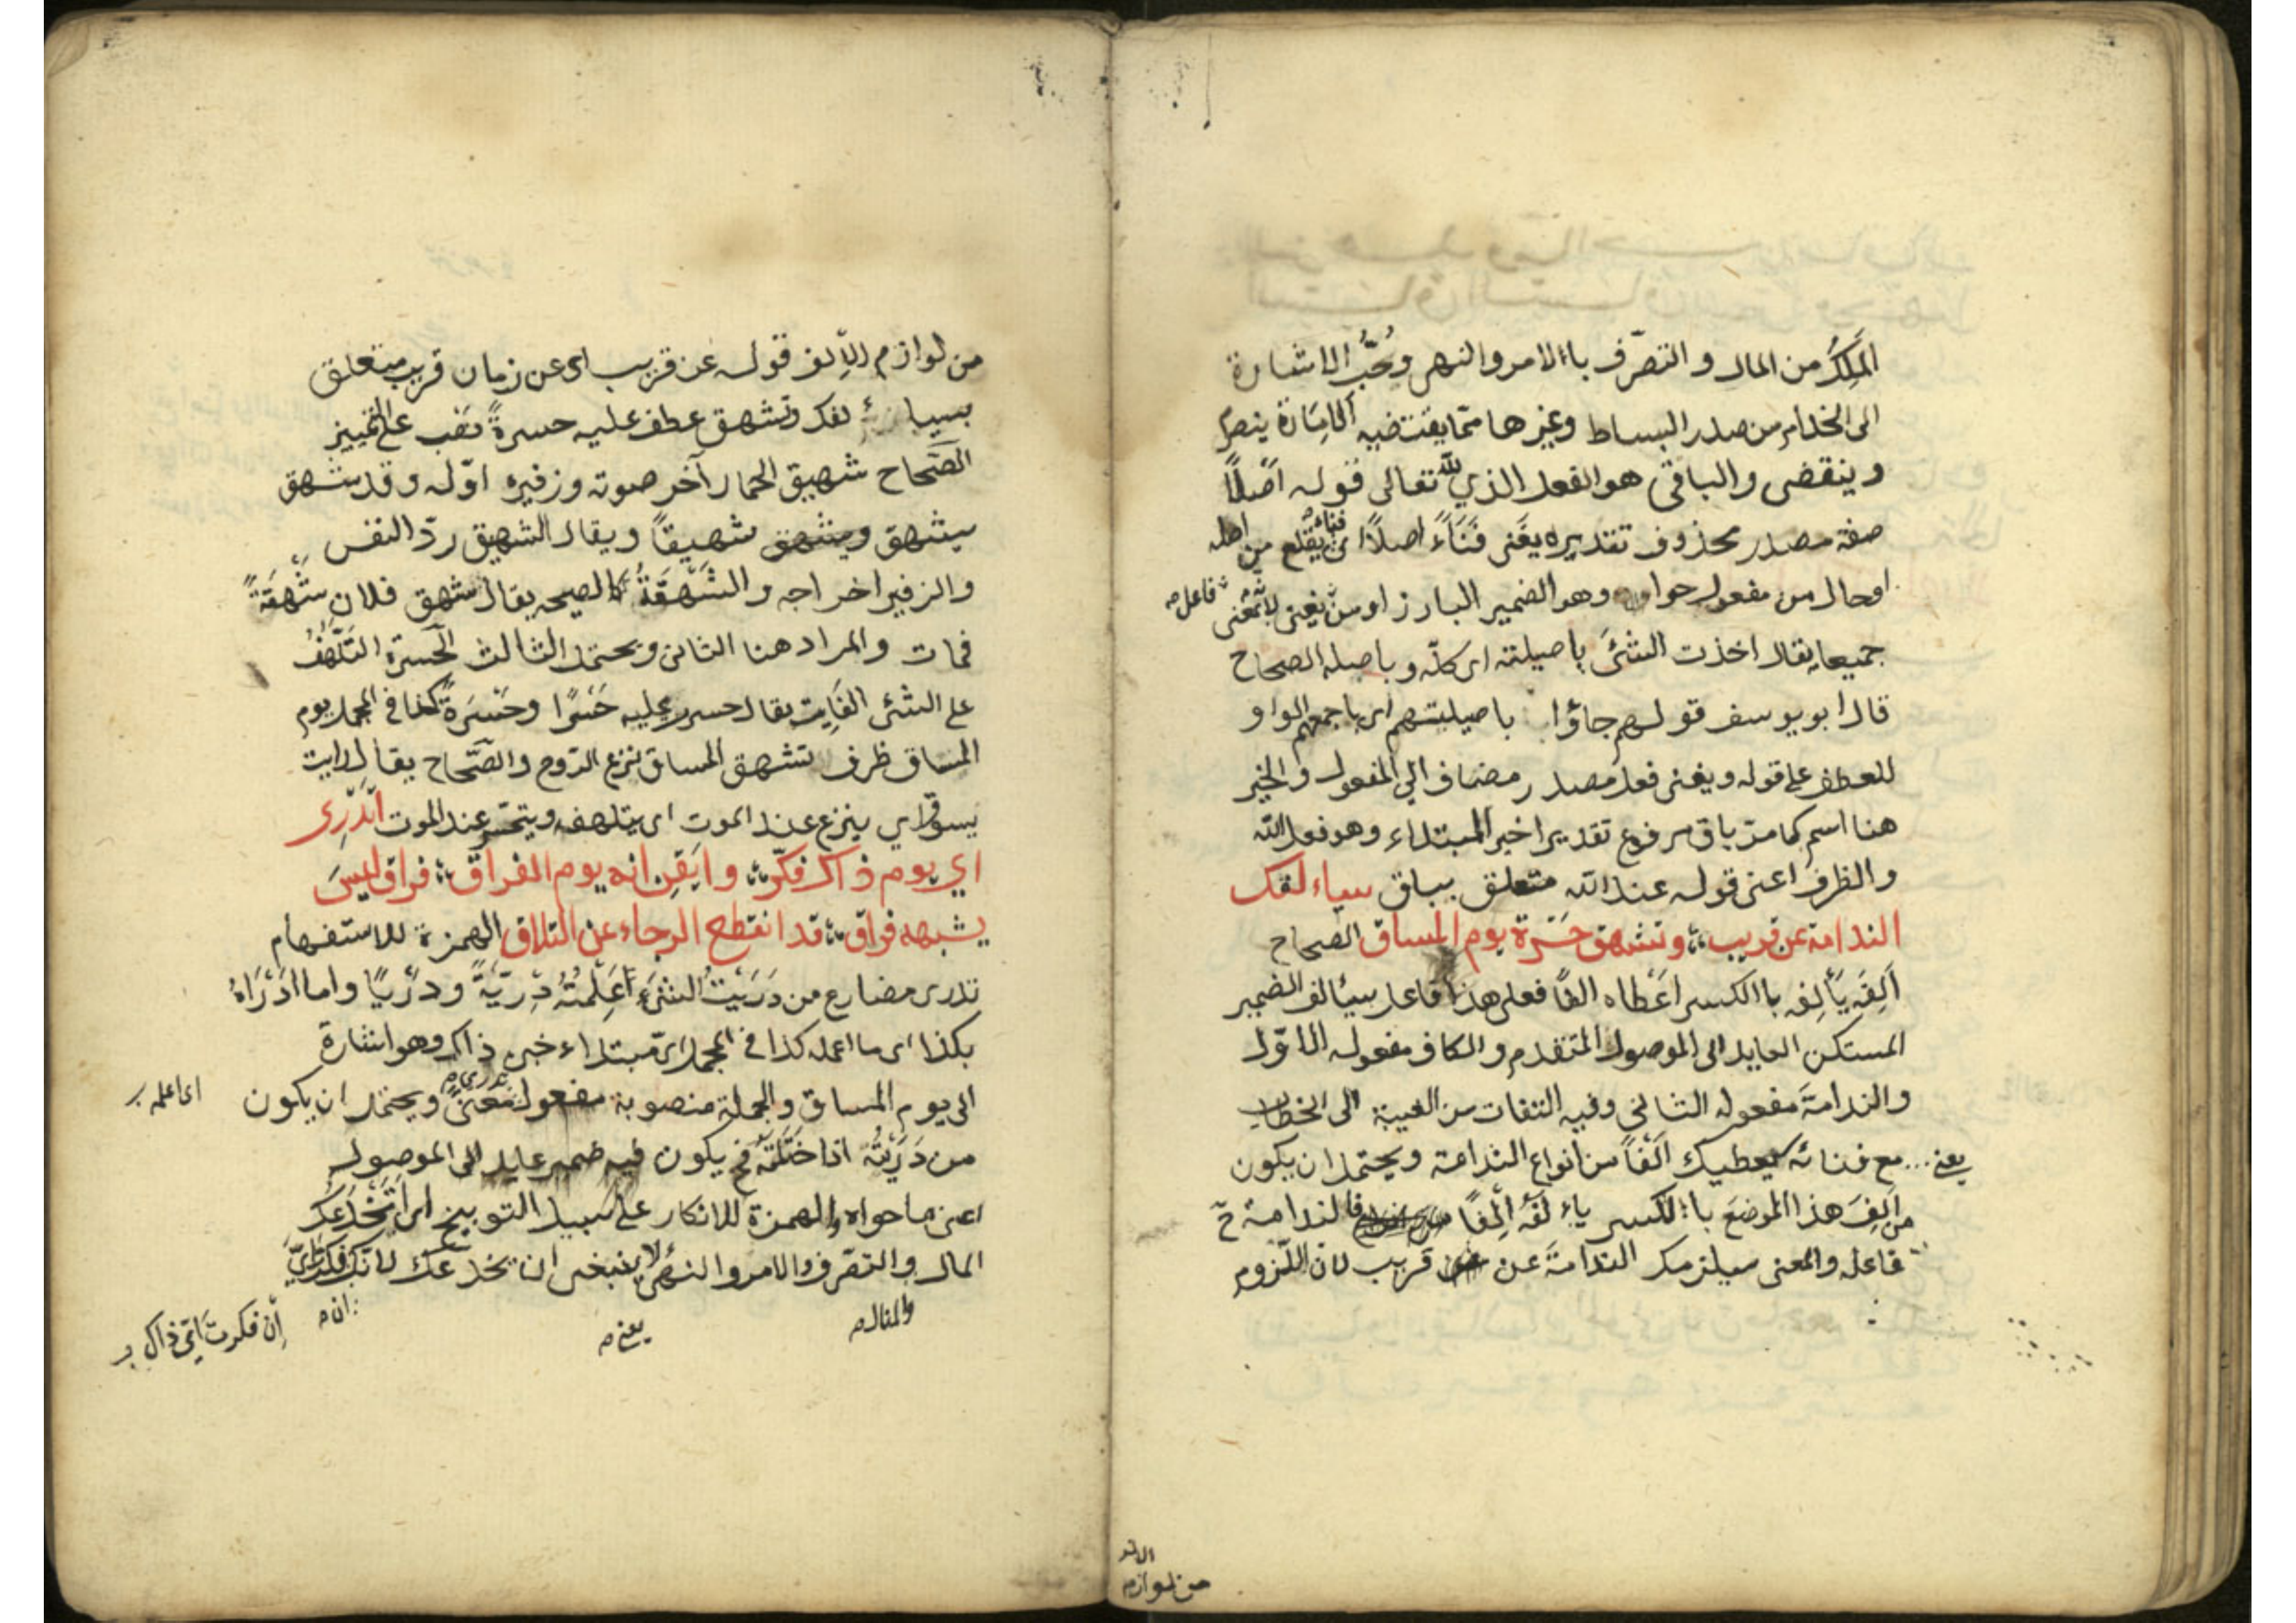 الملك من المال و التصرّف باالامر والنهى وحُبُّ الاشارة
الى الخدام من صدر البساط وغيرها ممّا يقتضيه الامارة ينصرم
وينقضى والباقى هو الفعل الذي لله تعالى قوله اصلًا
صفة مصدر محذوف تقديره يفنى فَنَاءً اصلًا اى فناء يقلع من اصله
اوحال من مفعول حواه وهو الضمير البارز او من يفنى لا بمعنى فاعل صه
جميعا يقال اخذت الشئَ باصيلته اى كلّه و باصله الصحاح
قال ابو يوسف قولهم جاؤا باصيلتهم اى باجمعهم الواو
للعطف على قوله ويفنى فعل مصدر مضاف الى المفعول والخبر
هنا اسم كما مرّ باق مرفوع تقديرا خبر المبتداء وهو فعل الله
والظرف اعنى قوله عند الله متعلق بباق سياءلفك
الندامة عن قريب وتشهق حَسْرة يوم المساق الصحاح
اَلِفَه يَأْلِفه باالكسر اَعْطاه الفًا فعلى هذا فاعل سيألف الضمير
المستكن العايد الى الموصول المتقدم والكاف مفعوله الاوّل
والندامةَ مفعوله الثانى وفيه التفات من الغيبة الى الخطاب
يعنى مع فنائه يعطيك اَلْفاً من انواع الندامة ويحتمل ان يكون
من اَلِفَ هذا الموضعَ باالكسر ياءلفه اِلْفًا فالندامة ح
فاعله والمعنى سيلزمك الندامةَ عن قريب لان اللزوم
الالف
من لوازم
من لوازم الاِلف قوله عن قريب اى عن زمان قريب متعلق
بسياءلفك وتشهق عطف عليه حسرةً نصب على التمييز
الصَّحاح شهيق الحمار آخر صوته وزفيره اوّله وقد شهق
يشهق ويشهق شهيقاً ويقال الشهيق ردّ النفس
والزفير اخراجه والشَّهْقَةُ كالصيحه يقال شهق فلان شَهْقَةً
فمات والمراد هنا الثانى ويحتمل الثالث الحَسرة التَّلَهُّفُ
على الشئى الفَايت يقال حسر عليه حَسْرًا وحَسْرَةً كذا فى المجمل يوم
المساق ظرف تشهق المساق نزع الرّوح والصَّحاح يقال رايت
يسوق اي ينزع عند الموت اى يتلهف ويتحسّر عند الموت اَتَدْرِى
اي يوم ذاك فكّر وايقن انه يوم الفراق فراق ليسَ
يشبهه فراق قد انقطع الرجاء عن التلاق الهمزة للاستفهام
تدرى مضارع من دَرَيْتُ الشئىَ اَعْلِمتُهُ دِرْيَةً ودَرْيًا واما ادْرَاهُ
بكذا اى ما اعمله كذا فى المجمل اىّ مبتداء خبره ذاك وهو اشارة
الى يوم المساق والجملة منصوبة مفعول تدرى مَعْنىً ويحتمل ان يكون
اى اعلمه
من دَرَيْتُهُ اذا خَتَلْتَهُ ح يكون فيه ضمير عايد الى الموصول
اعنى ما حواه والهمزة للانكار على سبيل التوبيخ اى اَتَخْدَعك
المال والتصّرف والامر والنهى لا ينبغى ان يخدعك لانّك
والمنال صه
يعنى صه
ان صه
اِن فكرتَ اىّ ذاك